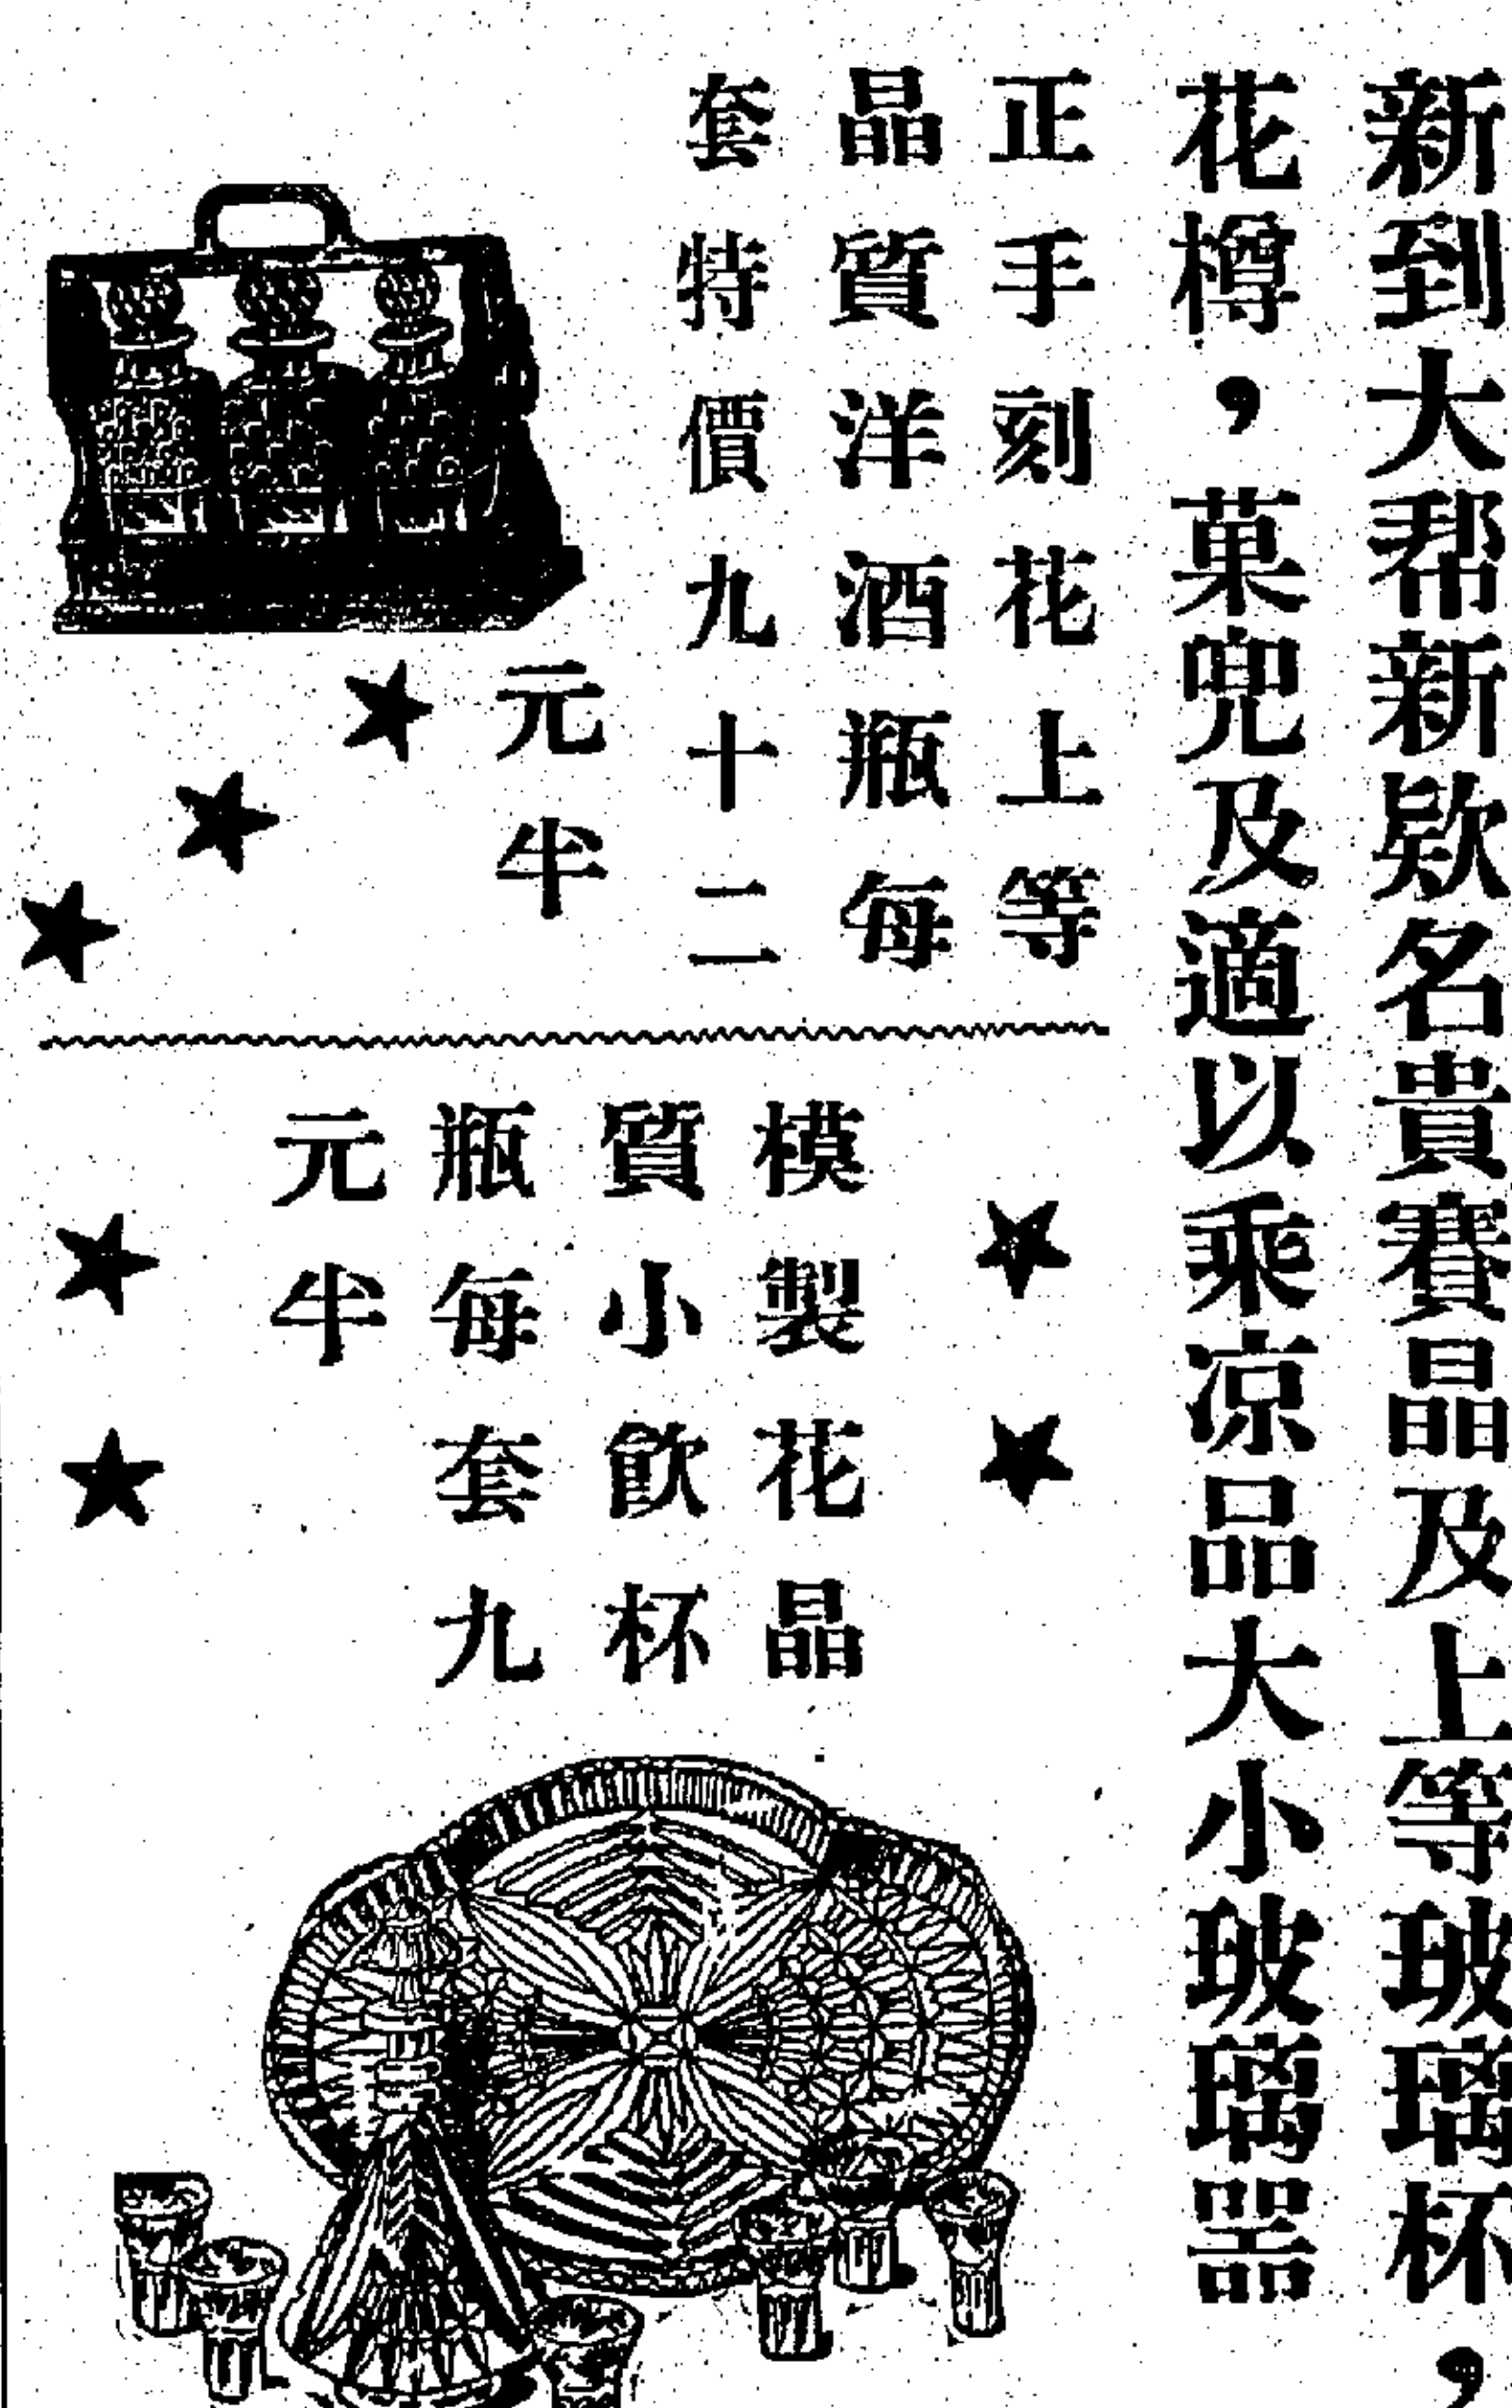 新到大帮新欵名貴賽晶及上等玻璃杯，
花樽，菓兜及適以乘凉品大小玻璃器
正手刻花上等
晶質洋酒瓶每
套特價九十二
元半
模製花晶
質小飲杯
瓶每套九
元半